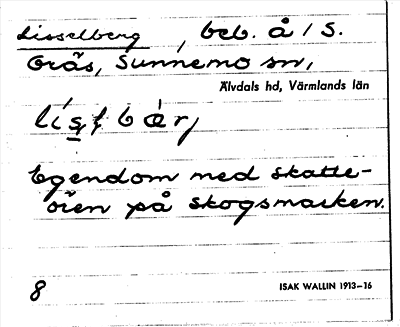 Lisselberg, beb. å / S.
Gräs, Sunnemo sn,
Älvdals hd, Värmlands län
Egendom med skatte-
ören på skogsmarken.
8
ISAK WALLIN 1913–16